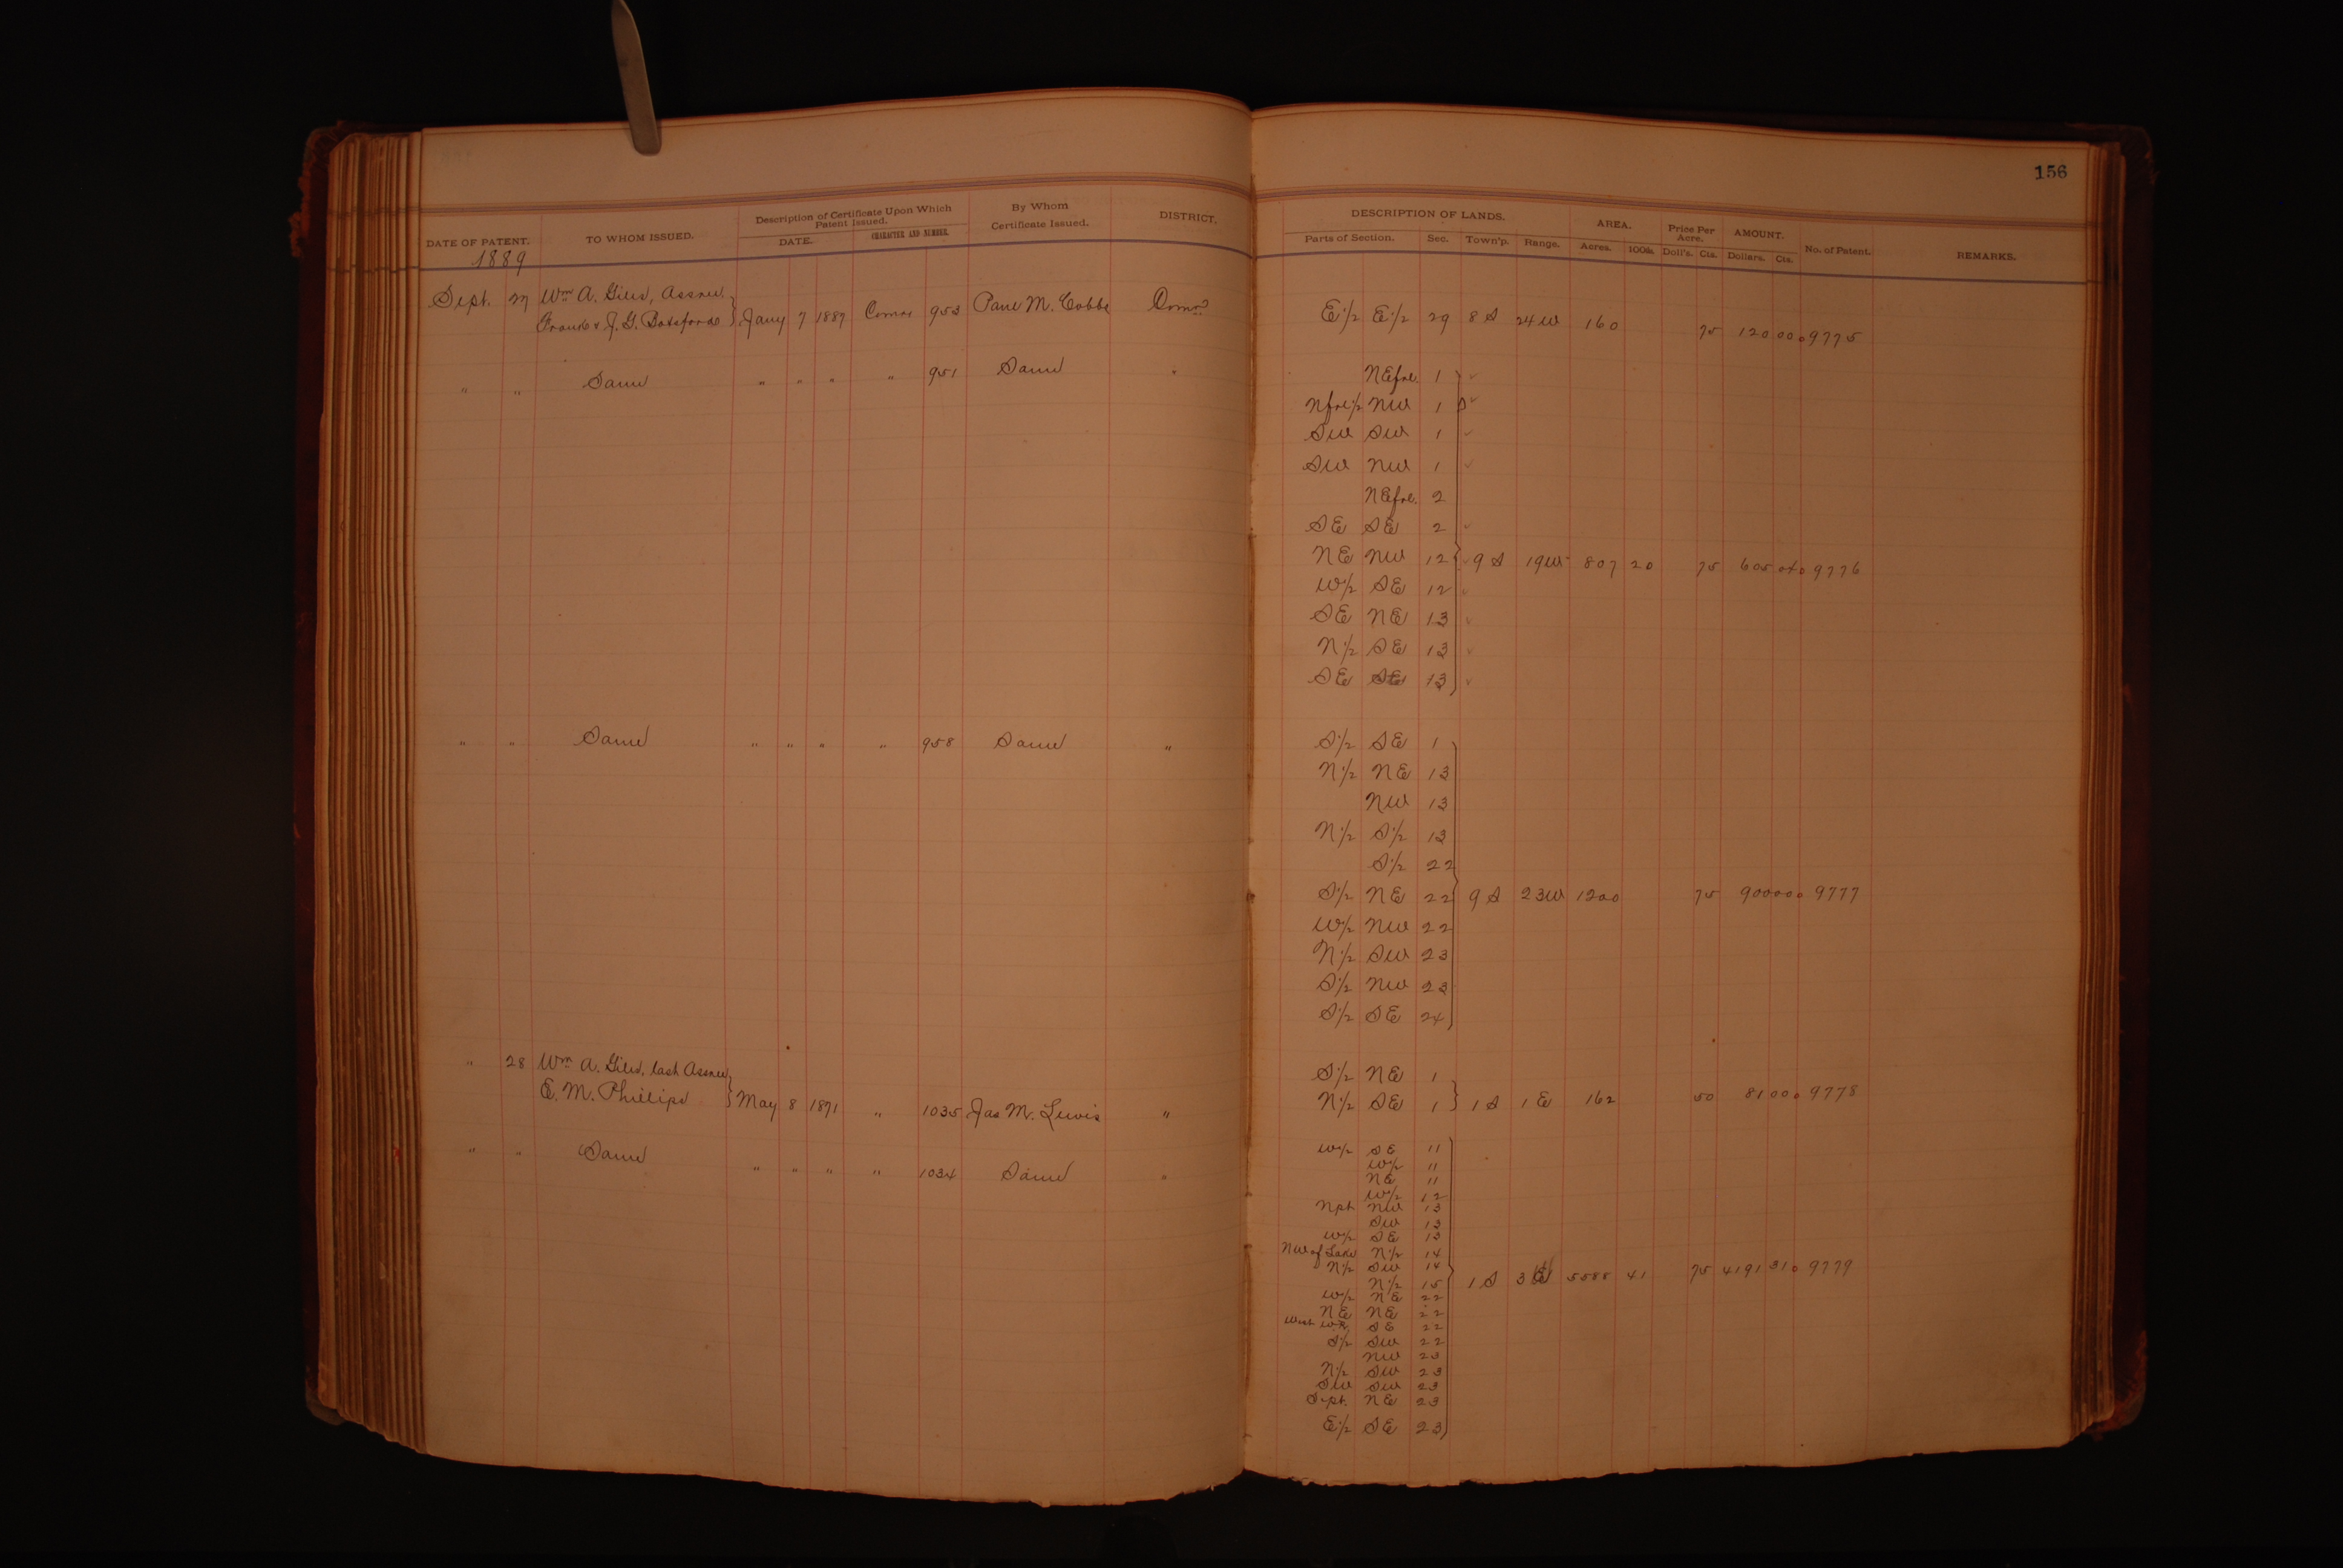 156
DATE OF PATENT. TO WHOM ISSUED. Description of Certificate Upon Which Patent Issued. DATE. CHARACTER AND NUMBER. By Whom Certificate Issued. DISTRICT. DESCRIPTION OF LANDS. Parts of Section. Sec. Town'p. Range. AREA. Acres. 100ths. Price Per Acre. Doll's. Cts. AMOUNT. Dollars. Cts. No. of Patent. REMARKS.
1889
Sept. 27 Wm A. Giles, Assnee.
Frank & J. G. Botsford } Jany 7 1887 953 M. Cobbs E 1/2 E 1/2 29 8 S 24 W 160 75 120 00 9775
" " Same " " " " 951 Same " NE frl. 1
N frl 1/2 NW 1
SW SW 1
SW NW 1
NE frl. 2
SE SE 2
NE NW 12 9 S 19 W 807 20 75 605 40 9776
W 1/2 SE 12
SE NE 13
N 1/2 SE 13
SE SE 13
" " Same " " " " 958 Same " S 1/2 SE 1
N 1/2 NE 13
NW 13
N 1/2 S 1/2 13
S 1/2 22
S 1/2 NE 22 9 S 23 W 1200 75 900 00 9777
W 1/2 NW 22
N 1/2 SW 23
S 1/2 NW 23
S 1/2 SE 24
" 28 Wm A. Giles, last Assnee S 1/2 NE 1
E. M. Phillips } May 8 1871 " 1035 Jas M. Lewis " N 1/2 SE 1 } 1 S 1 E 162 50 81 00 9778
" " Same " " " " 1034 Same " W 1/2 SE 11
W 1/2 11
NE 11
W 1/2 12
N pt. NW 13
SW 13
W 1/2 SE 13
NW of Lake N 1/2 14
N 1/2 SW 14
N 1/2 15 1 S 3 5588 41 75 4191 31 9779
W 1/2 NE 22
NE NE 22
West SE 22
S 1/2 SW 22
NW 23
N 1/2 SW 23
SW SW 23
S pt. NE 23
E 1/2 SE 23